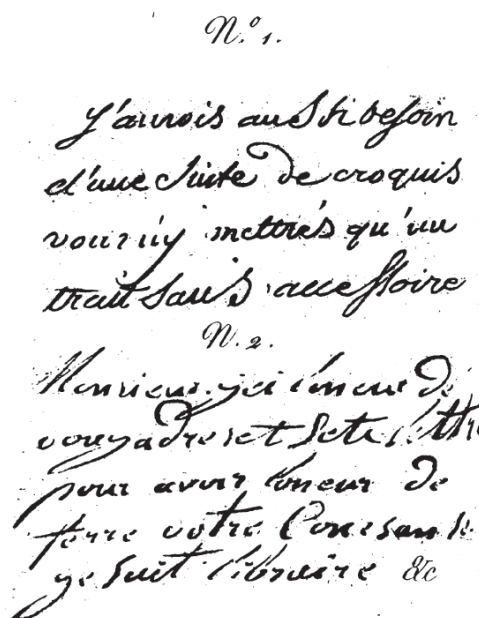 N.º 1.
J'aurois aussi besoin
d'une suite de croquis
vous n'y mettrés qu'un
trait sans accessoire
N. 2.
Monsieur jai loneur de
vous adreset sete lettre
pour avoir loneur de
ferre votre Conesanse
ge suit libraire &c